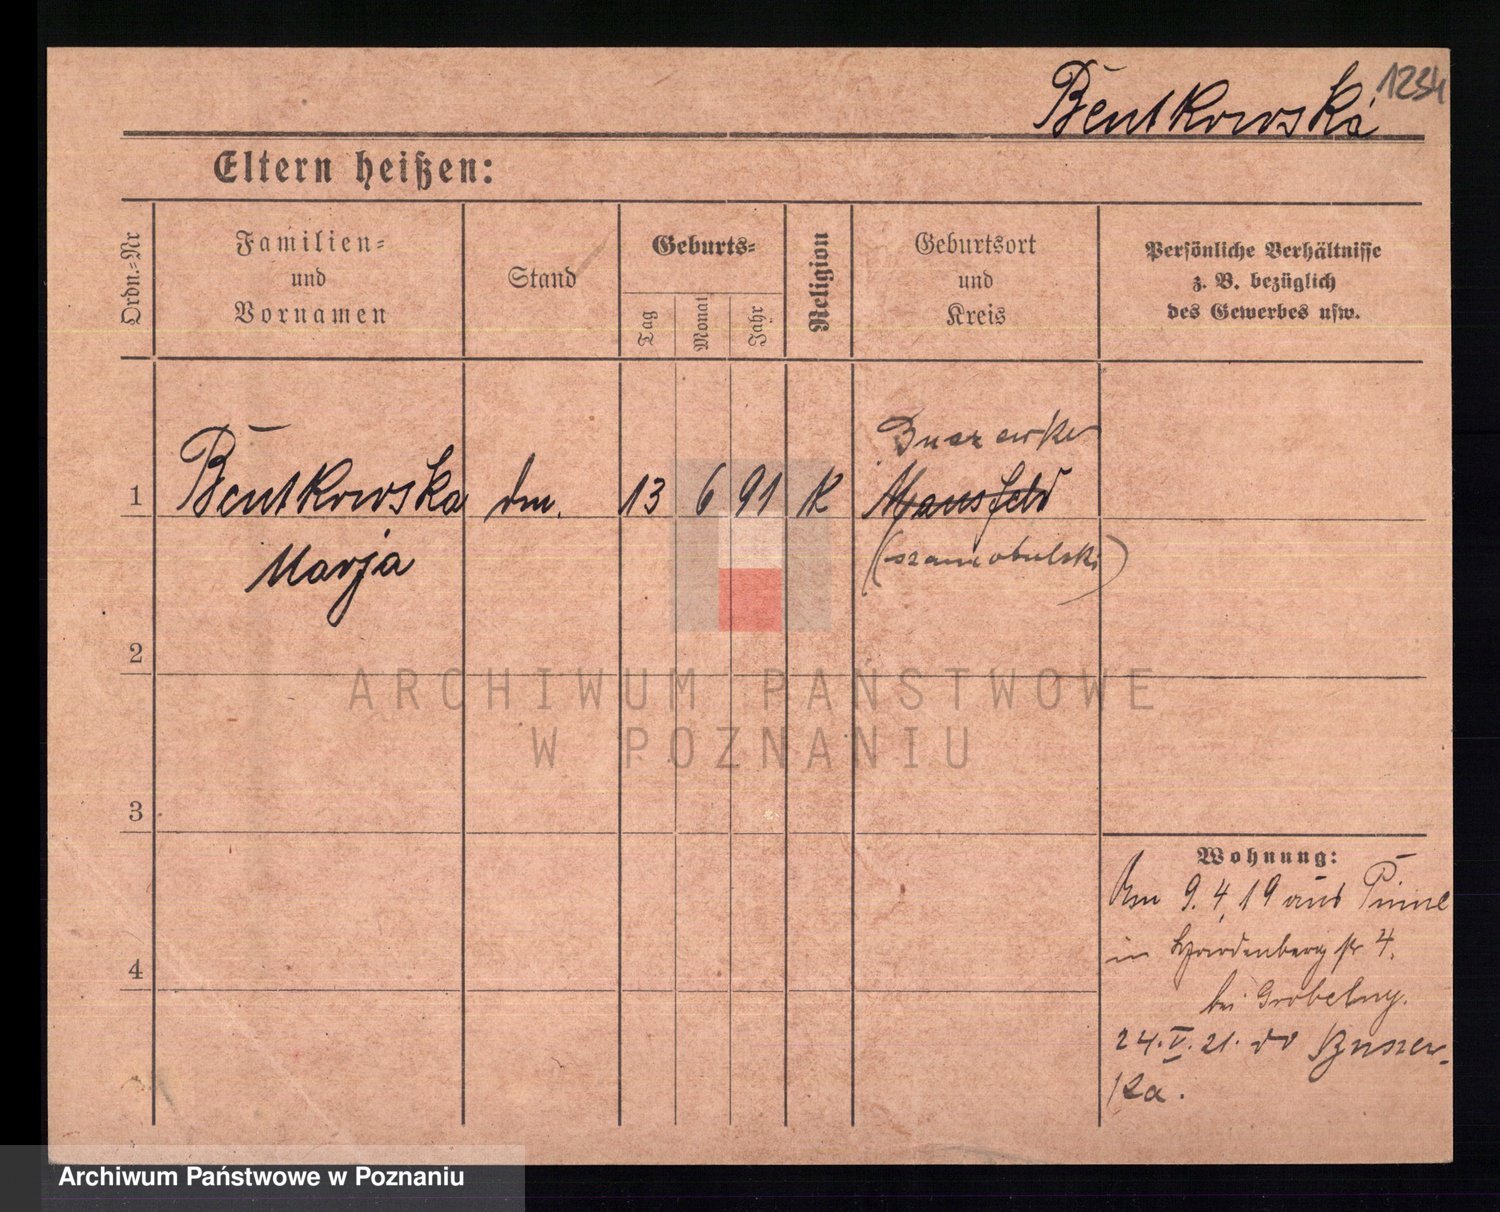 Bentkowska
1234
Eltern heißen:
Ordn.-Nr
Familien-
und
Vornamen
Stand
Geburts-
Tag
Monat
Jahr
Religion
Geburtsort
und
Kreis
Persönliche Verhältnisse
z. B. bezüglich
des Gewerbes usw.
1
Bentkowska
Marja
13 6 91 K
Mansfeld
2
3
4
Wohnung:
9.4.19 aus Pinne
in Hardenbergstr 4.
bei Grobelny.
24.V.21. do
ARCHIWUM PAŃSTWOWE
W POZNANIU
Archiwum Państwowe w Poznaniu